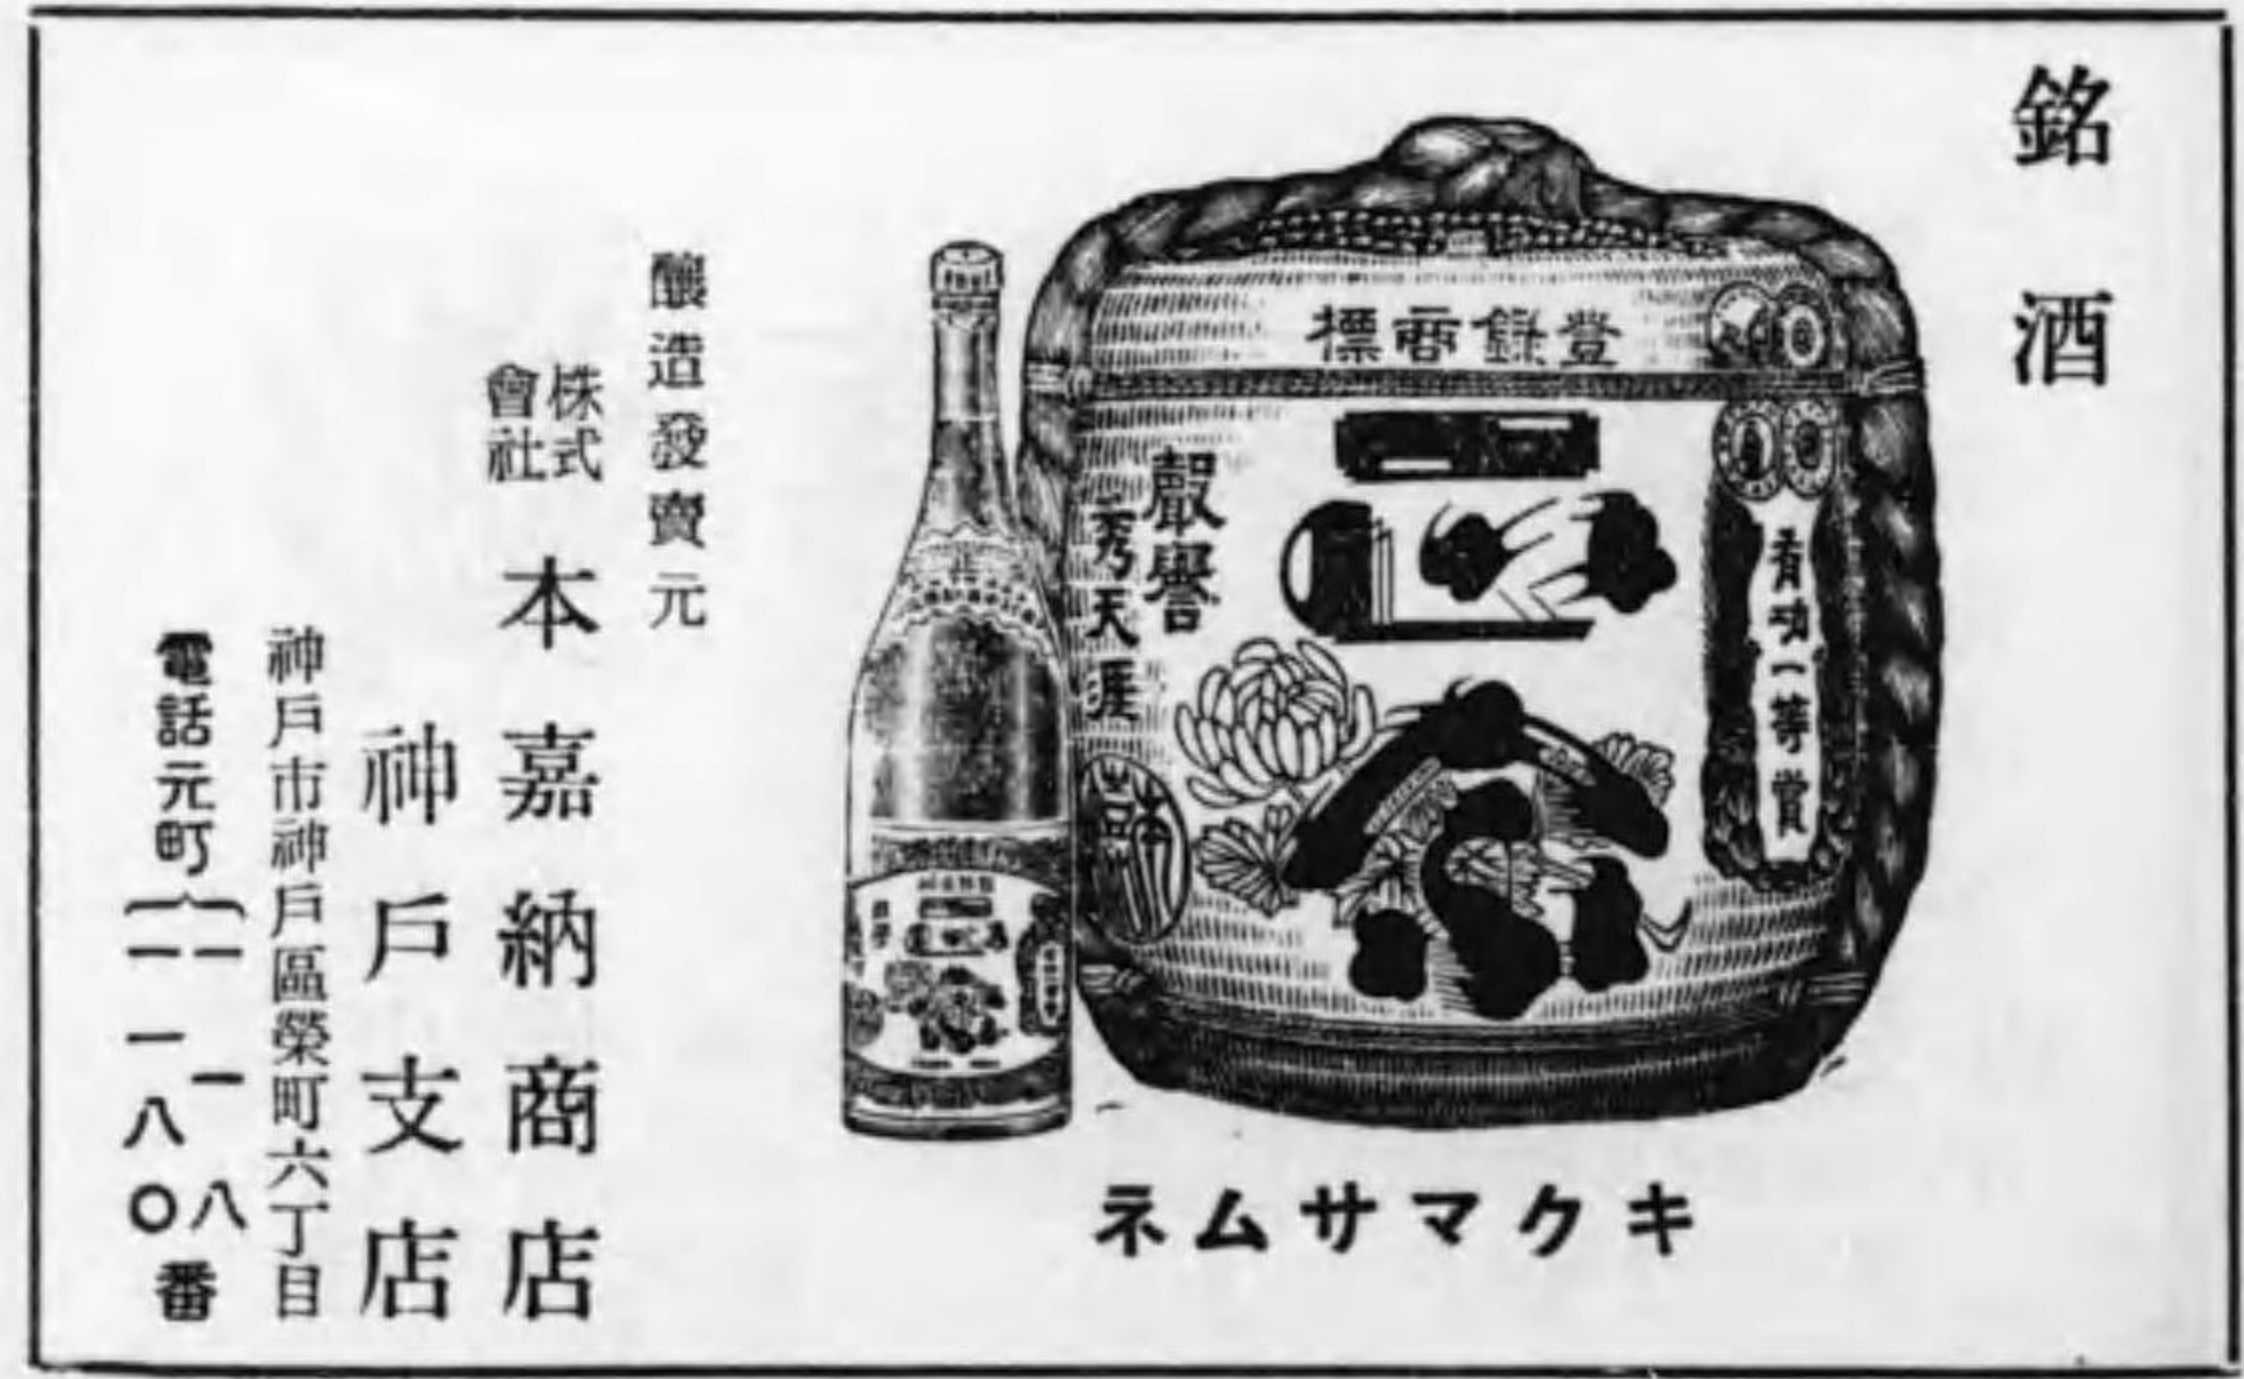 銘酒
登錄商標
有功一等賞
正宗
聲譽
秀天涯
キクマサムネ
釀造發賣元
株式會社 本嘉納商店
神戶支店
神戶市神戶區榮町六丁目
電話元町 一一八
一一八〇番